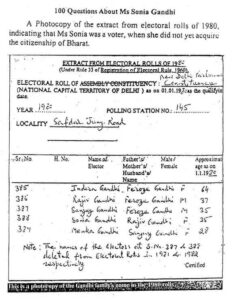 100 Questions About Ms Sonia Gandhi
A Photocopy of the extract from electoral rolls of 1980,
indicating that Ms Sonia was a voter, when she did not yet acquire
the citizenship of Bharat.
EXTRACT FROM ELECTORAL ROLLS OF 1980
(Under Rule 33 of Registration of Electoral Rule, 1960)
New Delhi
ELECTORAL ROLL OF ASSEMBLY CONSTITUENCY : Constituency
(NATIONAL CAPITAL TERRITORY OF DELHI ) as on 01.01.19 as the qualifying
date.
YEAR 1980 POLLING STATION NO. 145
LOCALITY Safdar Jung Road
Sr.No. H. No. Name of Elector Father's/ Mother's/ Husband's/ Name Male/ Female Approximate age as on 1.1.19
385 Indira Gandhi Feroze Gandhi F 64
386 Rajiv Gandhi Feroze Gandhi M 37
387 Sanjay Gandhi Feroze Gandhi M 35
388 Sonia Gandhi Rajiv Gandhi F
389 Maneka Gandhi Sanjay Gandhi F
Note: The names of the Electors at S.No. 387 & 388
deleted from Electoral Rolls in 1981 & 1982
respectively
Certified
This is a photocopy of the Gandhi family's name in the 1980 rolls